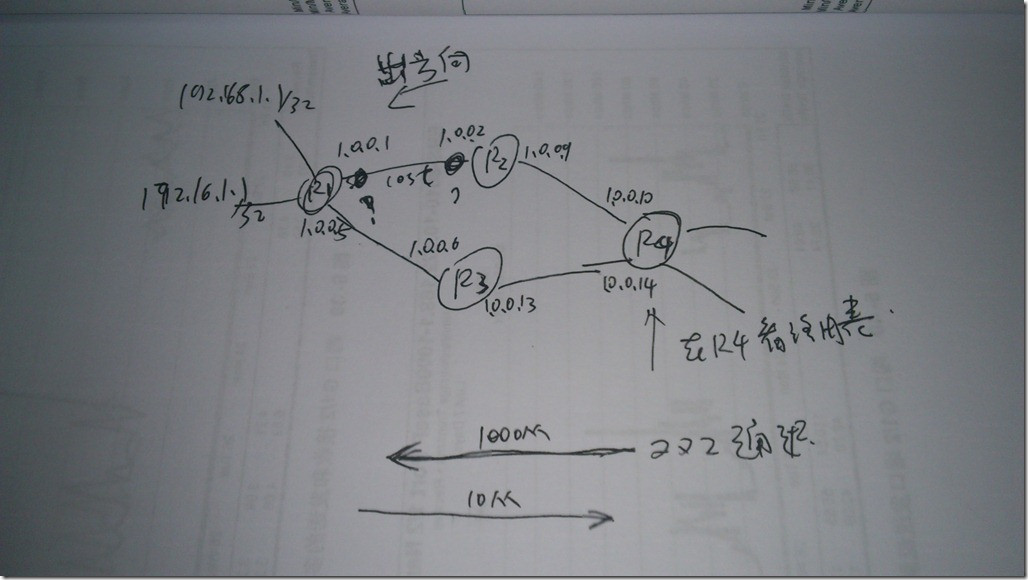 出方向
192.168.1.1/32
1.0.0.1
1.0.0.2
R2
1.0.0.9
cost
192.16.1.1/32
R1
?
?
1.0.0.5
1.0.0.6
R3
1.0.0.13
1.0.0.10
R4
1.0.0.14
在R4看路由表.
1000M
10M